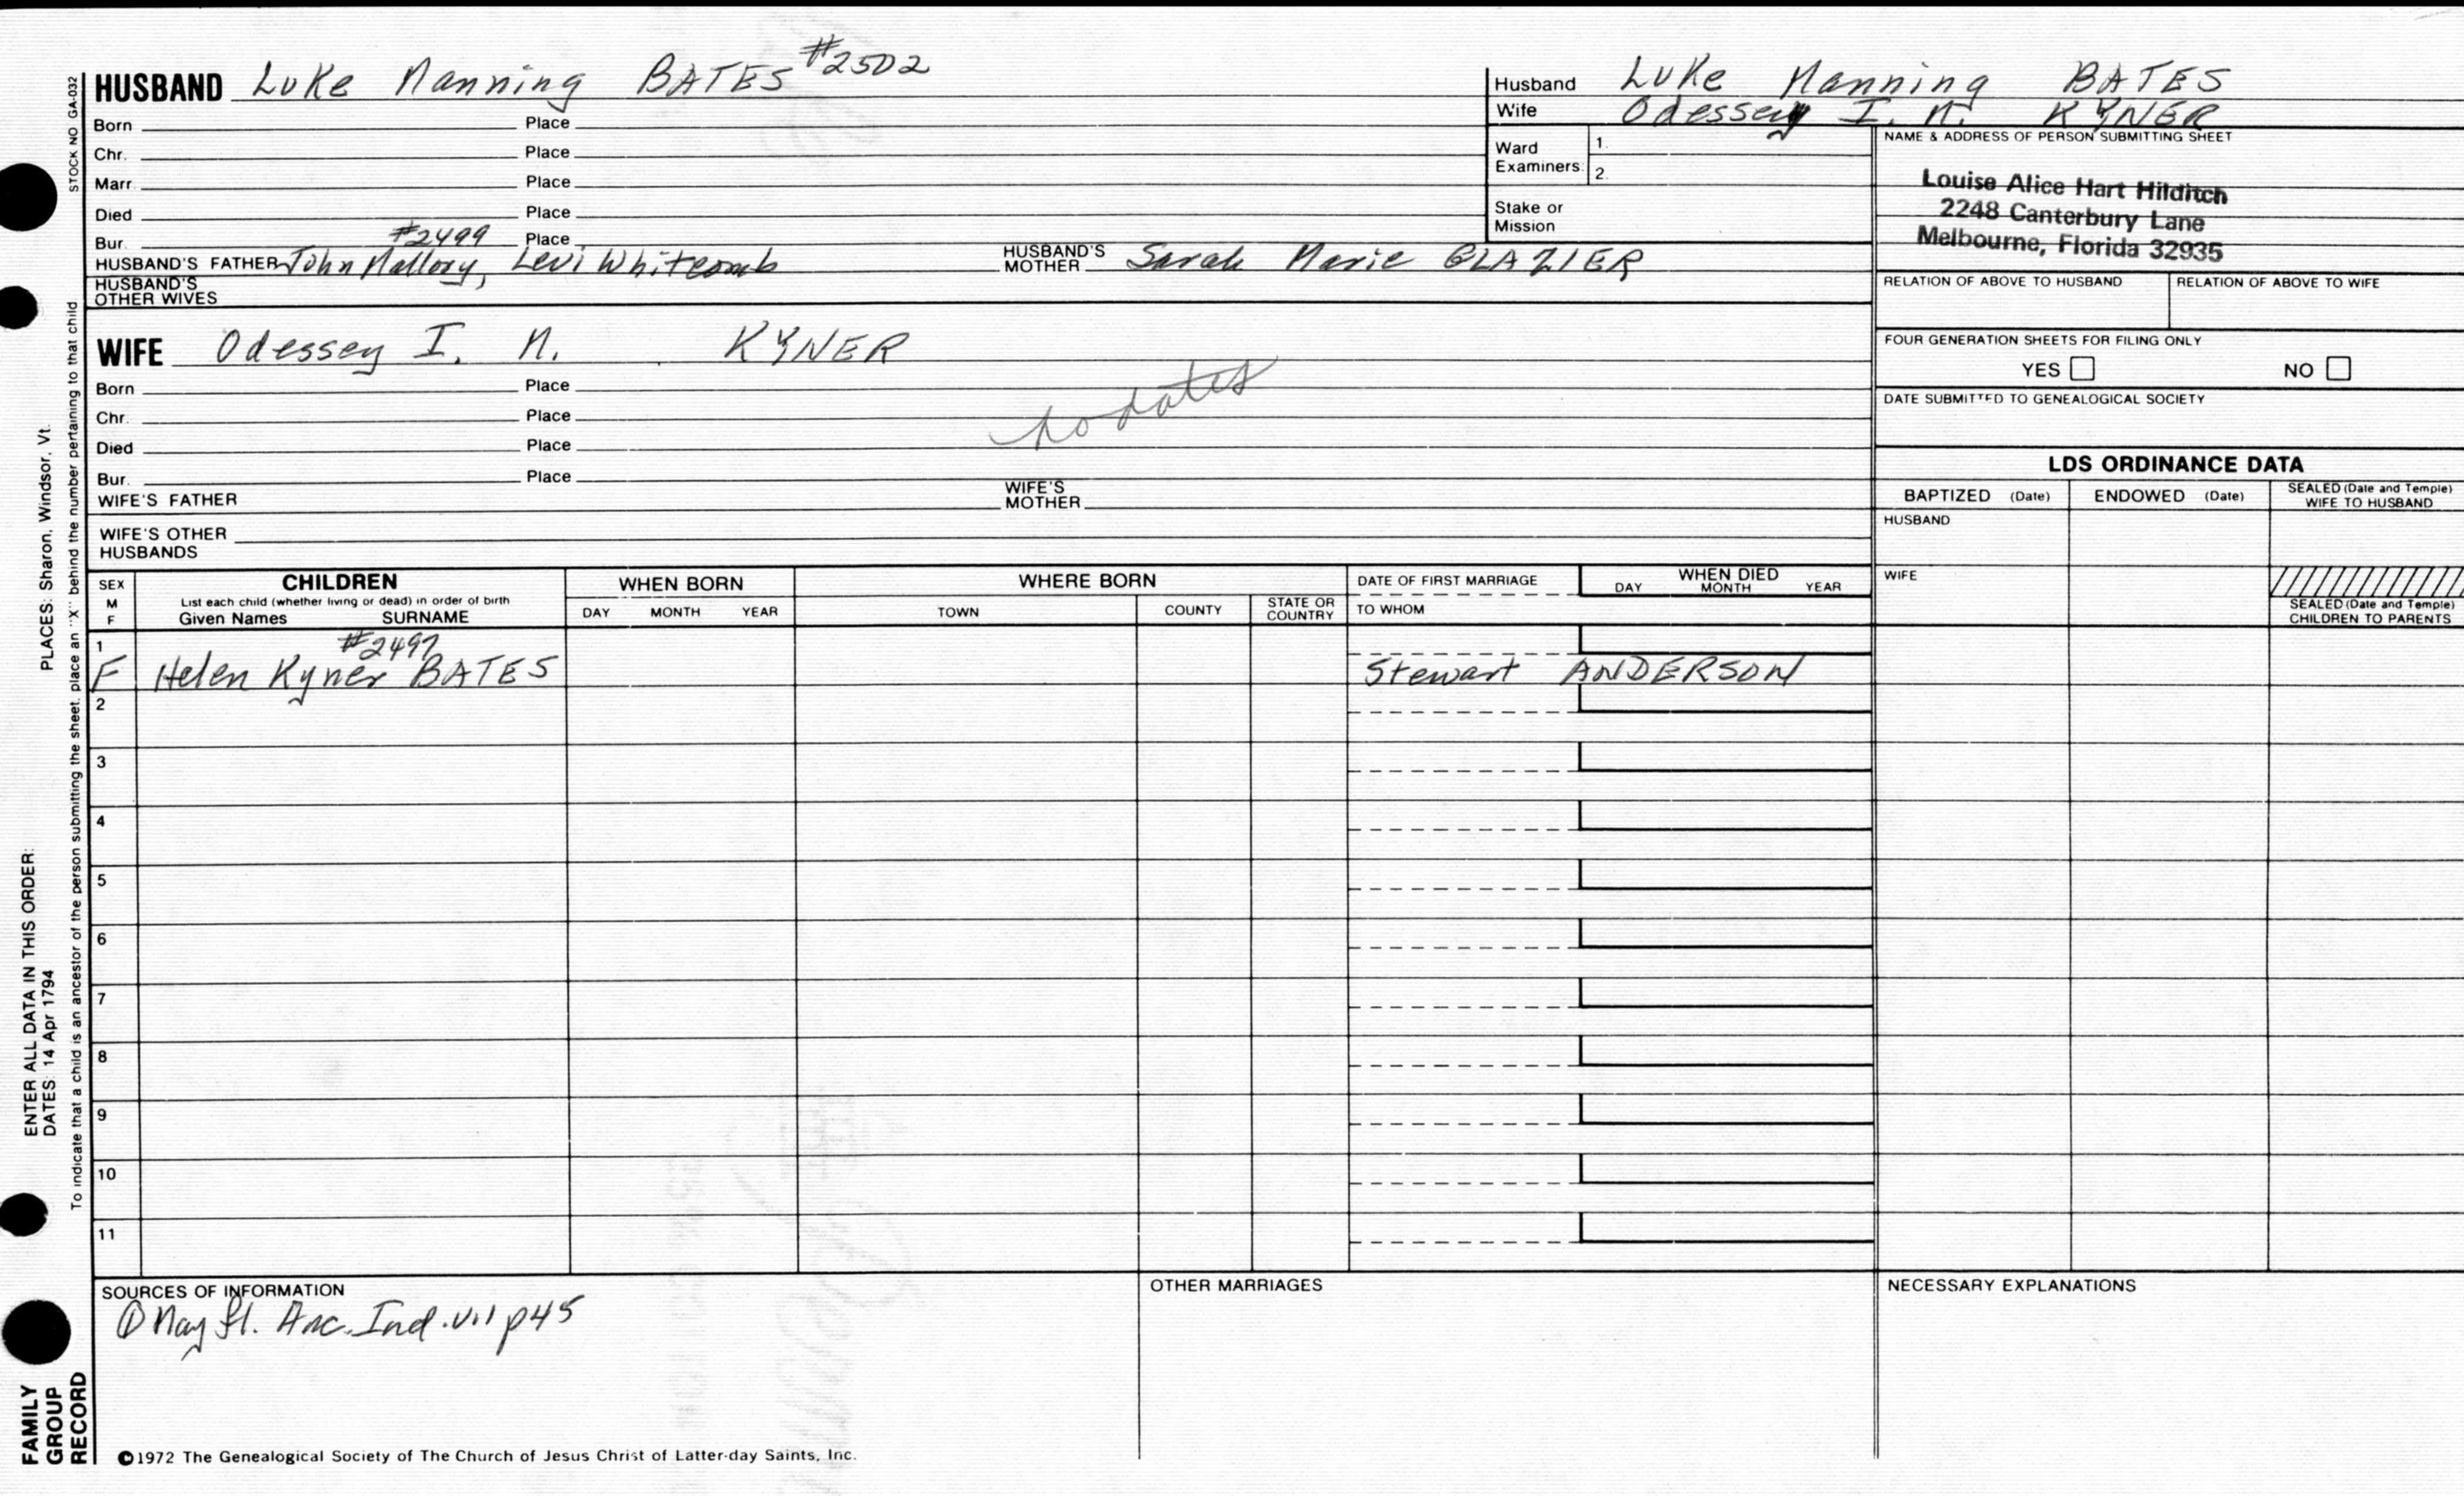 HUSBAND Luke Manning BATES #2502
Born Place
Chr. Place
Marr. Place
Died Place
Bur. #2499 Place
HUSBAND'S FATHER John Mallory, Levi Whitcomb HUSBAND'S MOTHER Sarah Marie GLAZIER
HUSBAND'S OTHER WIVES
WIFE Odessey I. N. KYNER
Born Place
Chr. Place
no dates
Died Place
Bur. Place
WIFE'S FATHER WIFE'S MOTHER
WIFE'S OTHER HUSBANDS
Husband Luke Manning BATES
Wife Odessey I. N. KYNER
Ward Examiners: 1. 2.
Stake or Mission
NAME & ADDRESS OF PERSON SUBMITTING SHEET
Louise Alice Hart Hilditch
2248 Canterbury Lane
Melbourne, Florida 32935
RELATION OF ABOVE TO HUSBAND RELATION OF ABOVE TO WIFE
FOUR GENERATION SHEETS FOR FILING ONLY
YES NO
DATE SUBMITTED TO GENEALOGICAL SOCIETY
LDS ORDINANCE DATA
BAPTIZED (Date) ENDOWED (Date) SEALED (Date and Temple) WIFE TO HUSBAND
HUSBAND
WIFE
SEALED (Date and Temple) CHILDREN TO PARENTS
SEX M F
CHILDREN
List each child (whether living or dead) in order of birth
Given Names SURNAME
WHEN BORN
DAY MONTH YEAR
WHERE BORN
TOWN COUNTY STATE OR COUNTRY
DATE OF FIRST MARRIAGE
TO WHOM
WHEN DIED
DAY MONTH YEAR
1 #2497
F Helen Kyner BATES Stewart ANDERSON
2
3
4
5
6
7
8
9
10
11
SOURCES OF INFORMATION
① May fl. Anc. Ind. v.1 p45
OTHER MARRIAGES
NECESSARY EXPLANATIONS
©1972 The Genealogical Society of The Church of Jesus Christ of Latter-day Saints, Inc.
STOCK NO GA-032
To indicate that a child is an ancestor of the person submitting the sheet, place an "X" behind the number pertaining to that child
ENTER ALL DATA IN THIS ORDER:
DATES: 14 Apr 1794
PLACES: Sharon, Windsor, Vt.
FAMILY
GROUP
RECORD